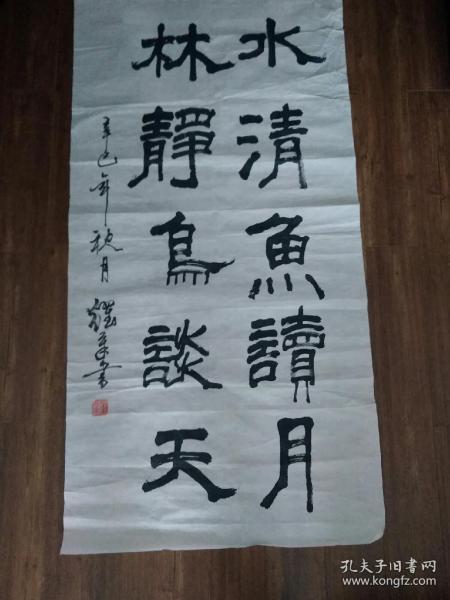 水清魚讀月
林靜鳥談天
辛巳年秋月
書
孔夫子旧书网
www.kongfz.com